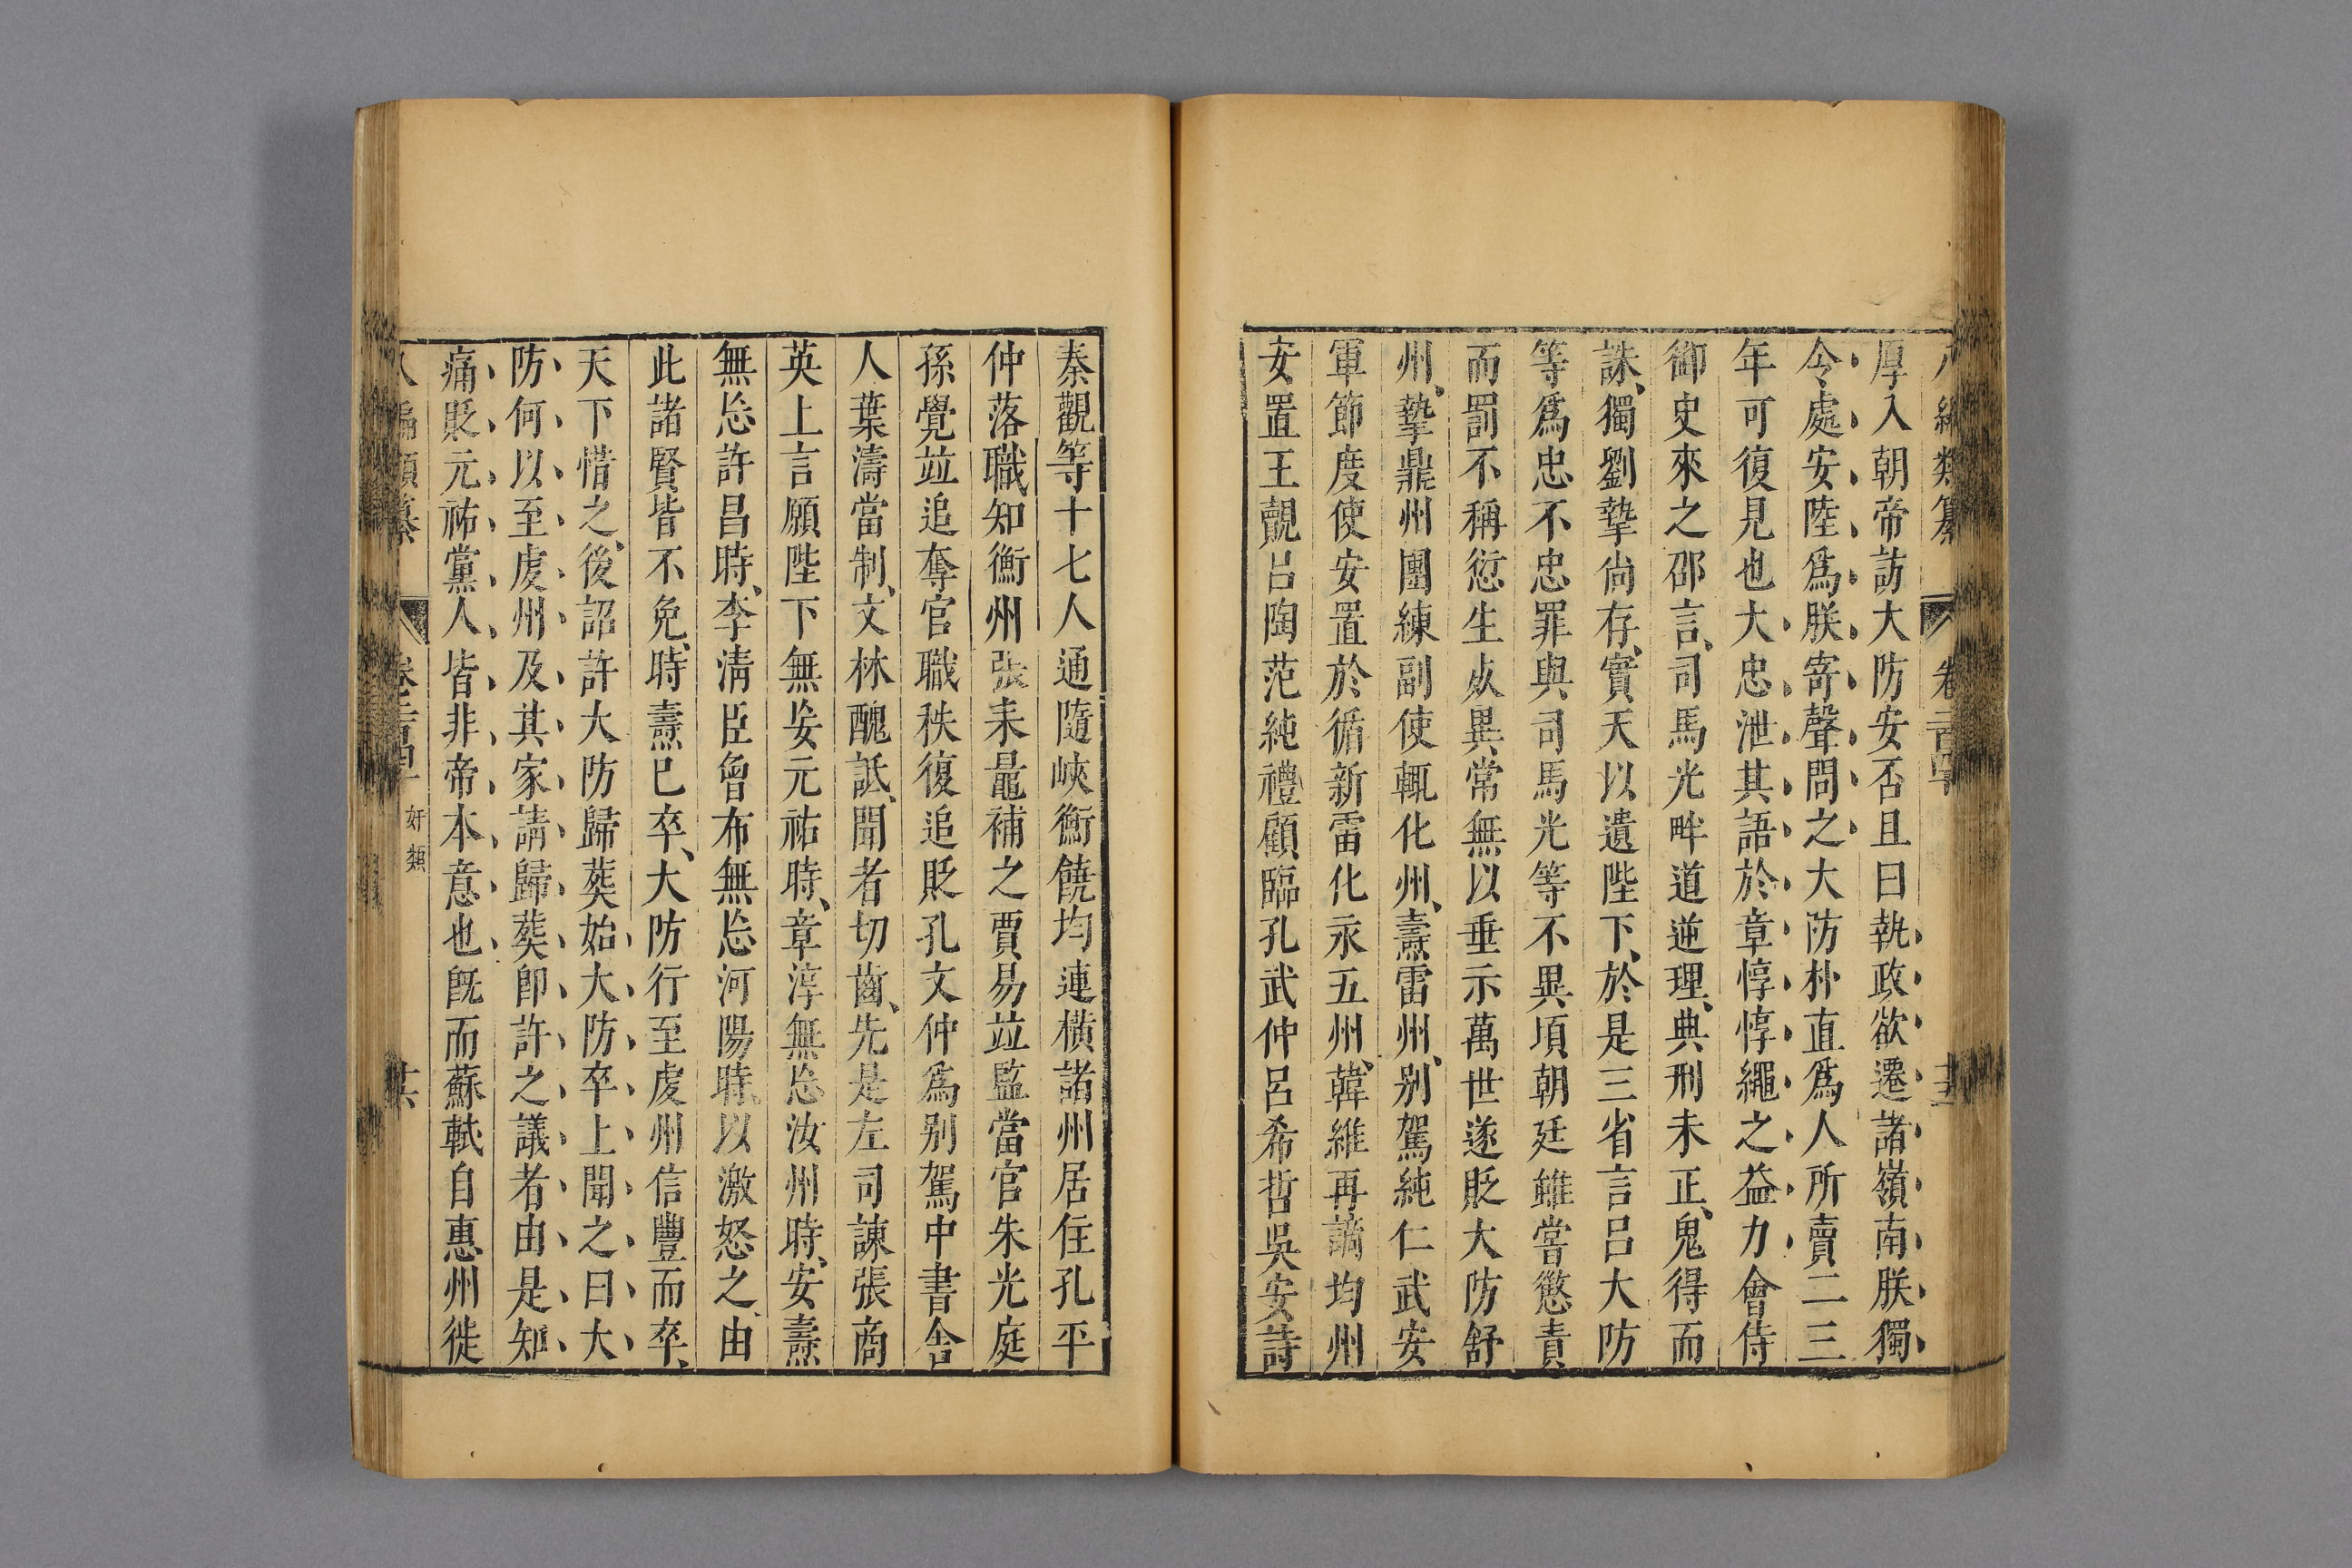 厚入朝帝訪大防安否且曰執政欲遷諸嶺南朕獨
令處安陸爲朕寄聲問之大防朴直爲人所賣二三
年可復見也大忠泄其語於章惇惇繩之益力會侍
御史來之邵言、司馬光畔道逆理、典刑未正、鬼得而
誅、獨劉摯尚存、實天以遺陛下、於是三省言呂大防
等爲忠不忠罪與司馬光等不異項朝廷雖嘗懲責
而罰不稱愆生死異常無以垂示萬世遂貶大防舒
州、摯鼎州團練副使轍化州、燾雷州、别駕純仁武安
軍節度使安置於循新雷化永五州、韓維再謫均州
安置王覿呂陶范純禮顧臨孔武仲呂希哲吳安詩
秦觀等十七人通隨峽衡饒均連橫諸州居住孔平
仲落職知衡州張耒鼂補之賈易竝監當官朱光庭
孫覺竝追奪官職秩復追貶孔文仲爲别駕中書舍
人葉濤當制、文林醜詆、聞者切齒、先是左司諫張商
英上言願陛下無妄元祐時、章淳無忘汝州時、安燾
無忘許昌時、李淸臣曾布無忘河陽時、以激怒之、由
此諸賢皆不免、時燾已卒、大防行至虔州信豐而卒、
天下惜之、後詔許大防歸葬始大防卒上聞之曰大
防何以至虔州及其家請歸葬卽許之議者由是知
痛貶元祐黨人皆非帝本意也旣而蘇軾自惠州徙
奸類